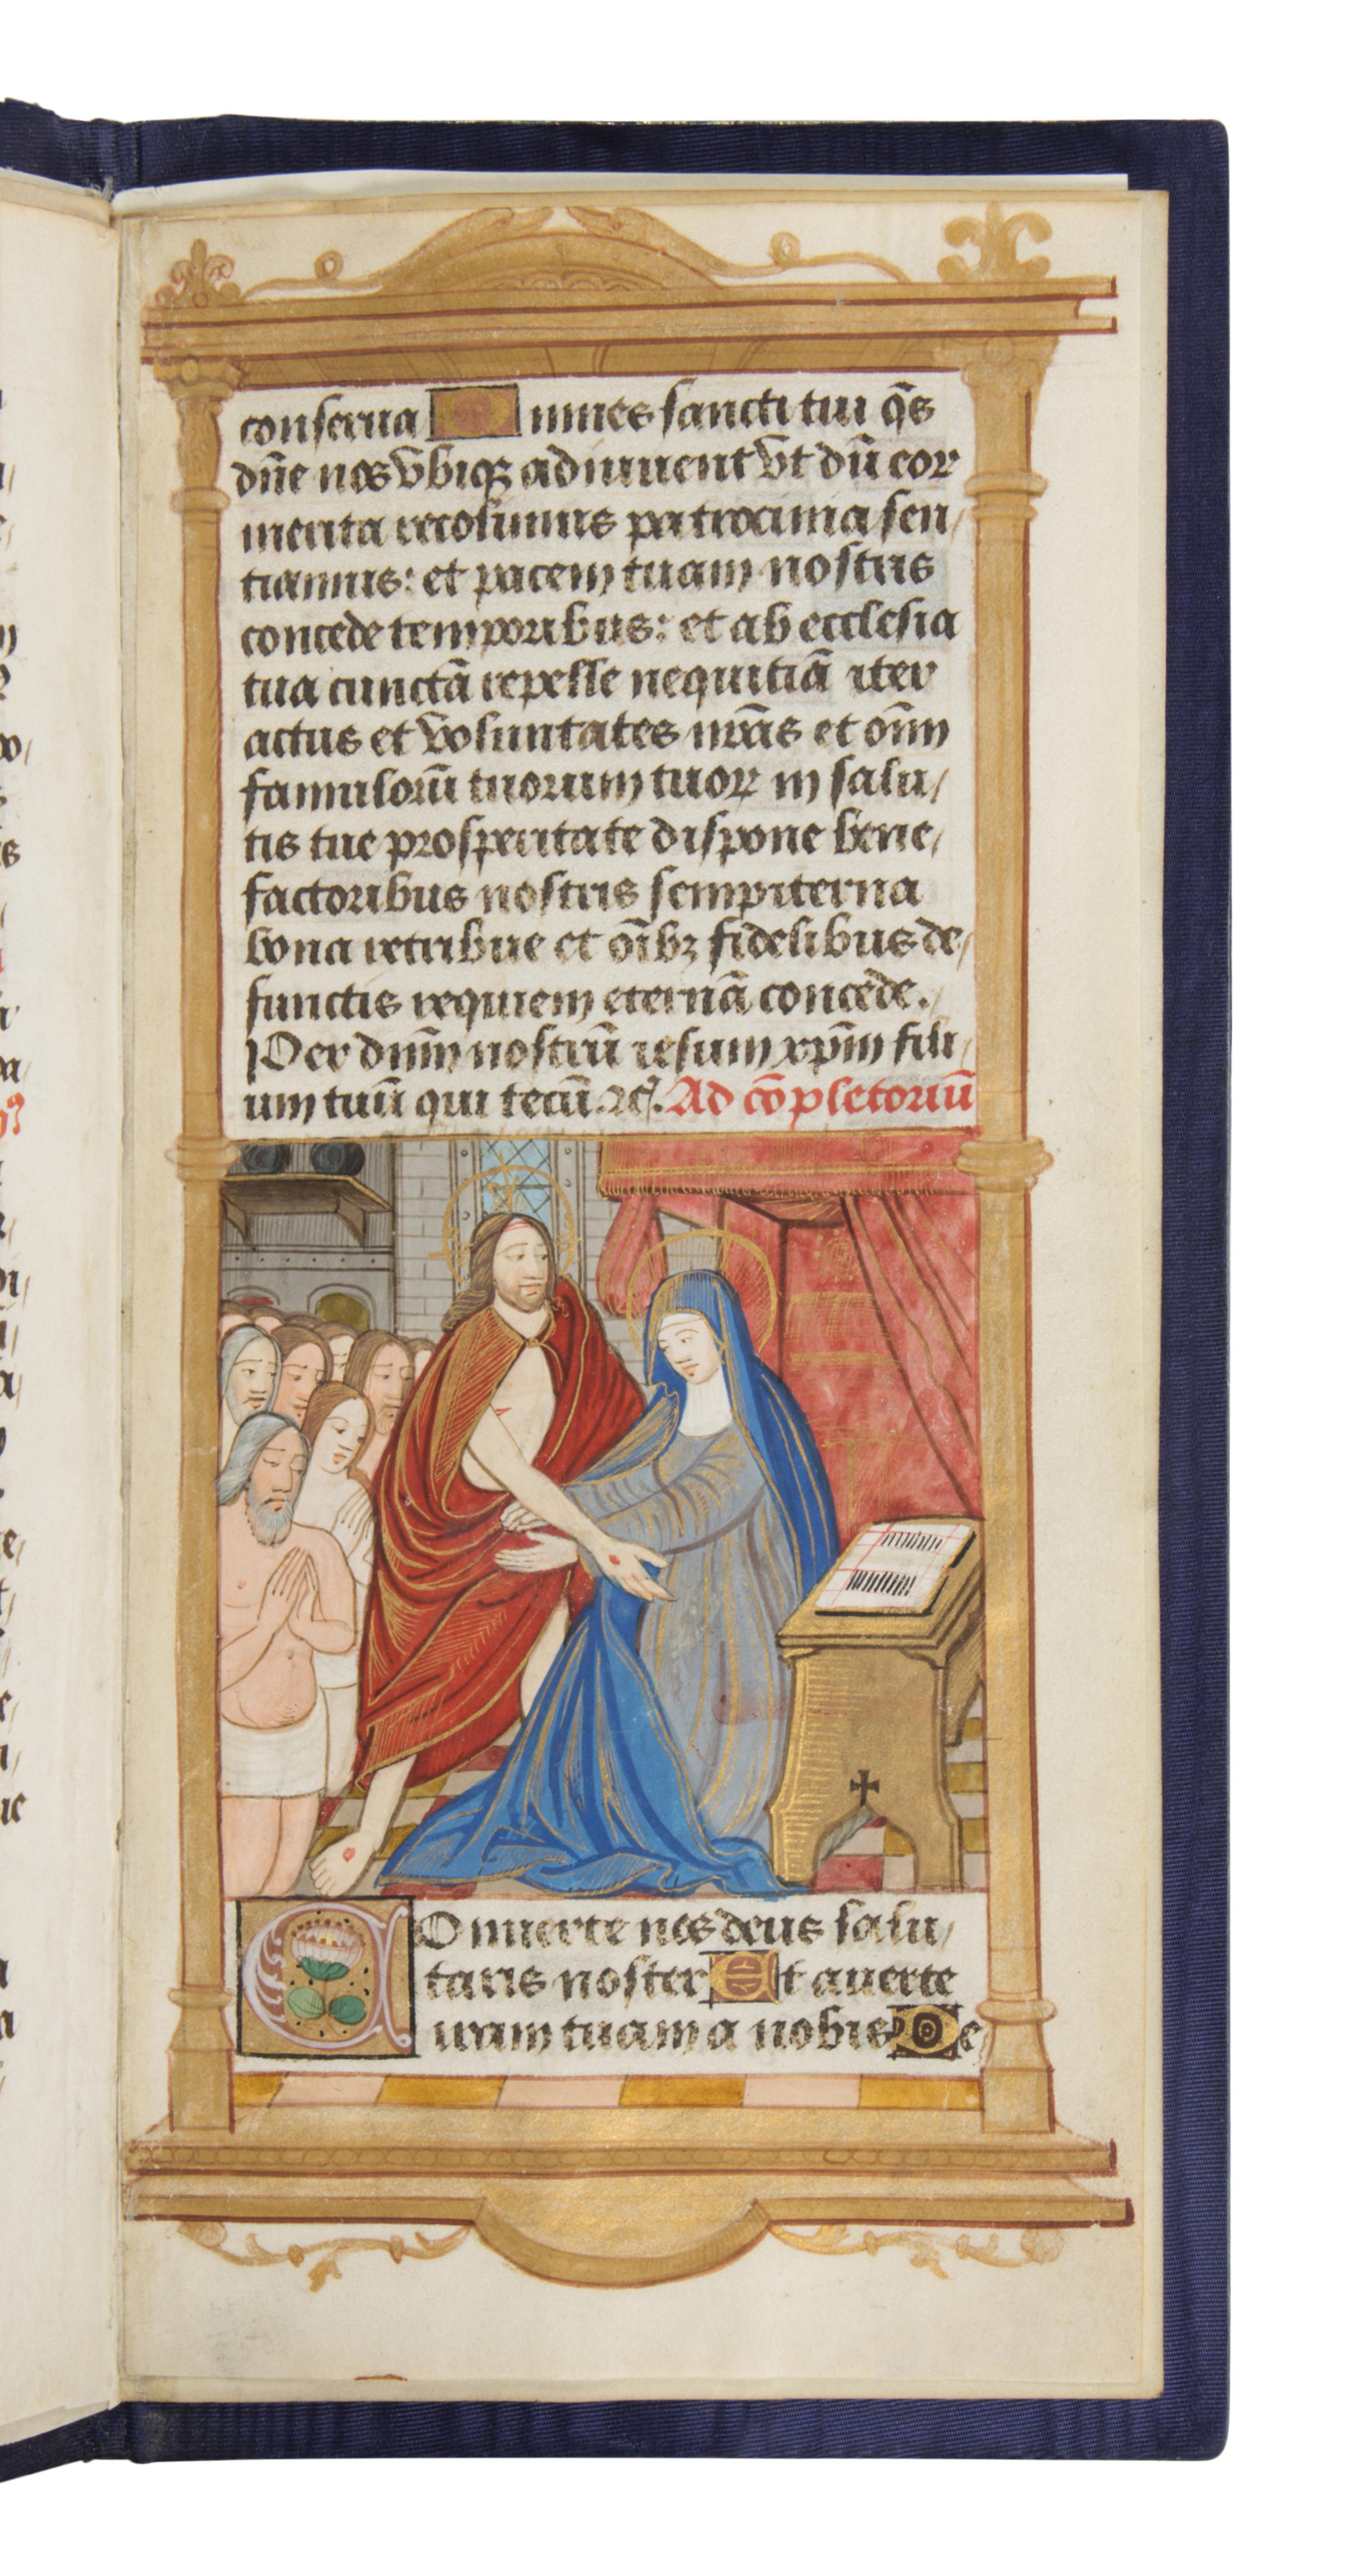 conserua Omnes sancti tui q̄s
dn̄e nos vbiqꝫ adiuuent vt dū eoꝝ
merita recolimus patrocinia sen/
tiamus: et pacem tuam nostris
concede temporibus: et ab ecclesia
tua cunctā repelle nequitiā iter
actus et voluntates nr̄as et oīm
famulorū tuorum tuoꝝ in salu/
tis tue prosperitate dispone bene/
factoribus nostris sempiterna
bona retribue et oībꝫ fidelibus de/
functis requiem eternā concede.
Per dn̄m nostrū iesum xp̄m fili/
um tuū qui tecū. ⁊c̄. Ad cōpletoriū
COnuerte nos deus salu/
taris noster Et auerte
iram tuam a nobis De